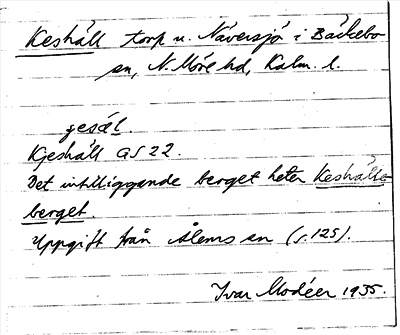 Keshäll torp u. Näversjö i Bäckebo
sn, N. Möre hd, Kalm. l.
Kjeshäll GS 22.
Det intilliggande berget heter Keshälls-
berget.
Uppgift från Ålems sn (s. 125).
Ivar Modéer 1935.